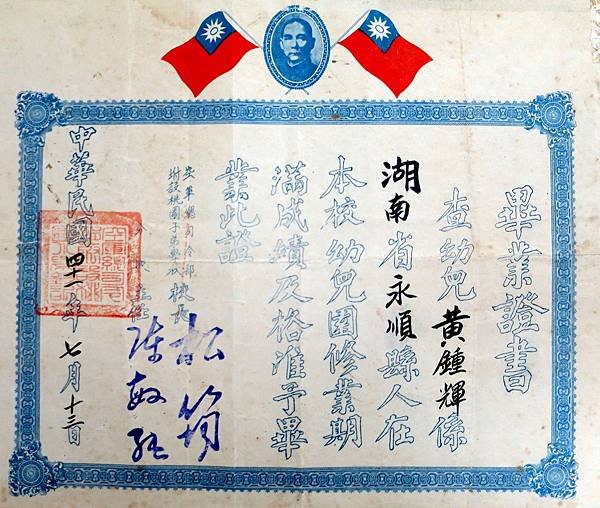 畢業證書
查幼兒黃鍾輝係
湖南省永順縣人在
本校幼兒園修業期
滿成績及格准予畢
業此證
空軍總司令部
附設桃園子弟學校
校長
主任
陳敏
中華民國四十一年七月十三日